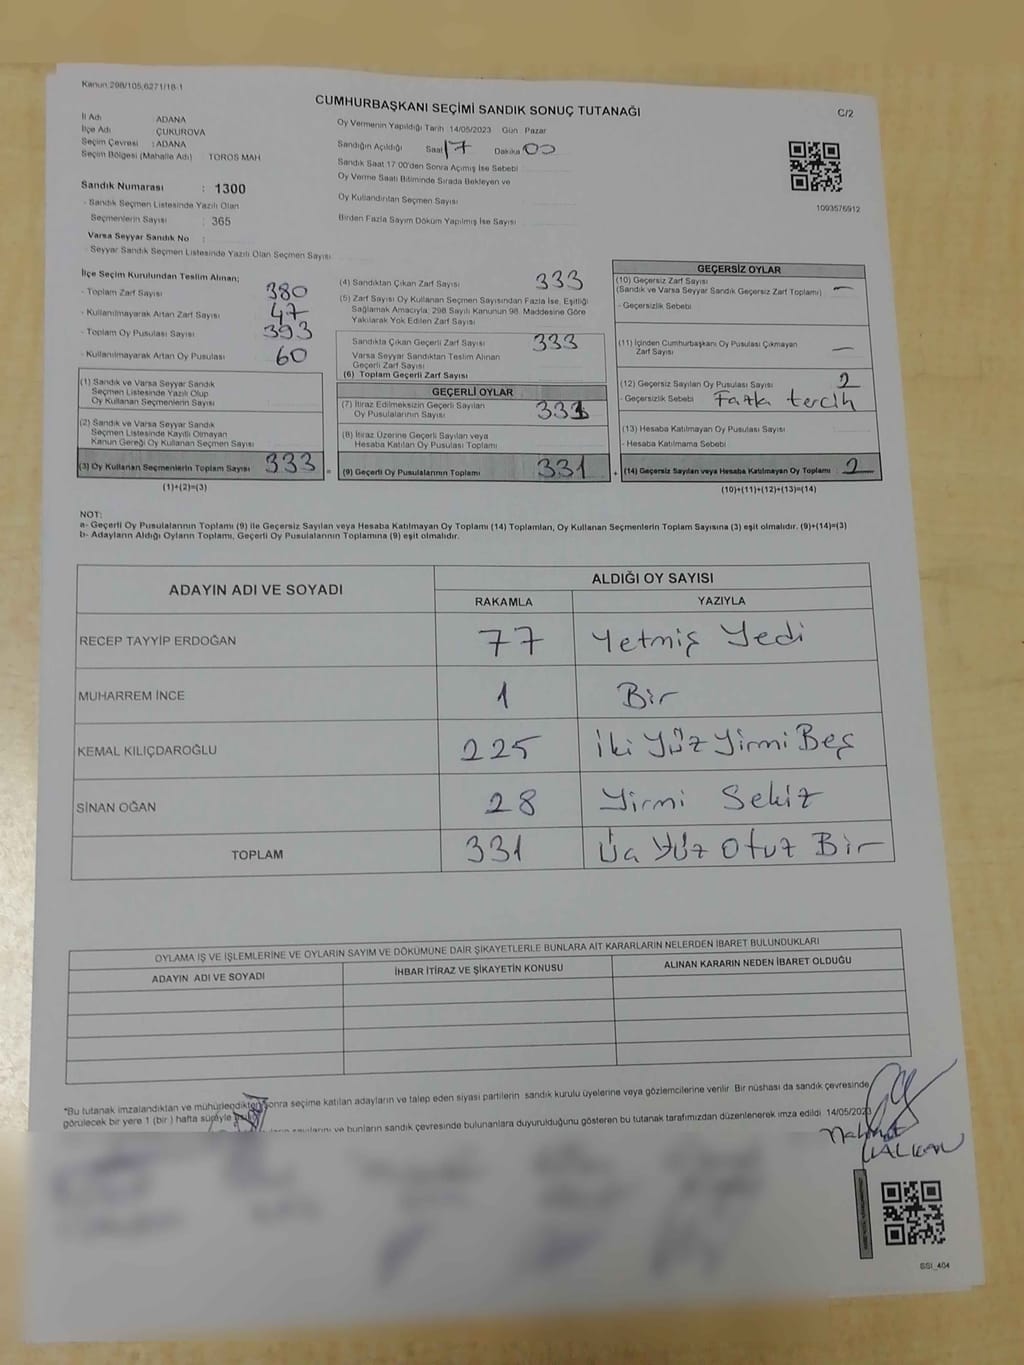 Kanun:298/105,6271/18-1
CUMHURBAŞKANI SEÇİMİ SANDIK SONUÇ TUTANAĞI
C/2
İl Adı ADANA
İlçe Adı ÇUKUROVA
Seçim Çevresi : ADANA
Seçim Bölgesi (Mahalle Adı) TOROS MAH
Oy Vermenin Yapıldığı Tarih 14/05/2023 Gün Pazar
Sandığın Açıldığı Saat 17 Dakika 00
Sandık Saat 17:00'den Sonra Açılmış İse Sebebi
Oy Verme Saati Bitiminde Sırada Bekleyen ve
Oy Kullandırılan Seçmen Sayısı
Birden Fazla Sayım Döküm Yapılmış İse Sayısı
1093576912
Sandık Numarası : 1300
- Sandık Seçmen Listesinde Yazılı Olan
Seçmenlerin Sayısı : 365
Varsa Seyyar Sandık No :
- Seyyar Sandık Seçmen Listesinde Yazılı Olan Seçmen Sayısı
İlçe Seçim Kurulundan Teslim Alınan;
- Toplam Zarf Sayısı 380
- Kullanılmayarak Artan Zarf Sayısı 47
- Toplam Oy Pusulası Sayısı 393
- Kullanılmayarak Artan Oy Pusulası 60
(1) Sandık ve Varsa Seyyar Sandık
Seçmen Listesinde Yazılı Olup
Oy Kullanan Seçmenlerin Sayısı
(2) Sandık ve Varsa Seyyar Sandık
Seçmen Listesinde Kayıtlı Olmayan
Kanun Gereği Oy Kullanan Seçmen Sayısı
(3) Oy Kullanan Seçmenlerin Toplam Sayısı 333
(1)+(2)=(3)
(4) Sandıktan Çıkan Zarf Sayısı 333
(5) Zarf Sayısı Oy Kullanan Seçmen Sayısından Fazla İse, Eşitliği
Sağlamak Amacıyla; 298 Sayılı Kanunun 98. Maddesine Göre
Yakılarak Yok Edilen Zarf Sayısı
Sandıkta Çıkan Geçerli Zarf Sayısı 333
Varsa Seyyar Sandıktan Teslim Alınan
Geçerli Zarf Sayısı
(6) Toplam Geçerli Zarf Sayısı
=
GEÇERLİ OYLAR
(7) İtiraz Edilmeksizin Geçerli Sayılan
Oy Pusulalarının Sayısı 331
(8) İtiraz Üzerine Geçerli Sayılan veya
Hesaba Katılan Oy Pusulası Toplamı
(9) Geçerli Oy Pusulalarının Toplamı 331
+
GEÇERSİZ OYLAR
(10) Geçersiz Zarf Sayısı
(Sandık ve Varsa Seyyar Sandık Geçersiz Zarf Toplamı) —
- Geçersizlik Sebebi
(11) İçinden Cumhurbaşkanı Oy Pusulası Çıkmayan
Zarf Sayısı —
(12) Geçersiz Sayılan Oy Pusulası Sayısı 2
- Geçersizlik Sebebi Fazla tercih
(13) Hesaba Katılmayan Oy Pusulası Sayısı
- Hesaba Katılmama Sebebi
(14) Geçersiz Sayılan veya Hesaba Katılmayan Oy Toplamı : 2
(10)+(11)+(12)+(13)=(14)
NOT:
a- Geçerli Oy Pusulalarının Toplamı (9) ile Geçersiz Sayılan veya Hesaba Katılmayan Oy Toplamı (14) Toplamları, Oy Kullanan Seçmenlerin Toplam Sayısına (3) eşit olmalıdır. (9)+(14)=(3)
b- Adayların Aldığı Oyların Toplamı, Geçerli Oy Pusulalarının Toplamına (9) eşit olmalıdır.
ADAYIN ADI VE SOYADI
ALDIĞI OY SAYISI
RAKAMLA YAZIYLA
RECEP TAYYİP ERDOĞAN 77 Yetmiş Yedi
MUHARREM İNCE 1 Bir
KEMAL KILIÇDAROĞLU 225 İki Yüz Yirmi Beş
SİNAN OĞAN 28 Yirmi Sekiz
TOPLAM 331 Üç Yüz Otuz Bir
OYLAMA İŞ VE İŞLEMLERİNE VE OYLARIN SAYIM VE DÖKÜMÜNE DAİR ŞİKAYETLERLE BUNLARA AİT KARARLARIN NELERDEN İBARET BULUNDUKLARI
ADAYIN ADI VE SOYADI
İHBAR İTİRAZ VE ŞİKAYETİN KONUSU
ALINAN KARARIN NEDEN İBARET OLDUĞU
*Bu tutanak imzalandıktan ve mühürlendikten sonra seçime katılan adayların ve talep eden siyasi partilerin sandık kurulu üyelerine veya gözlemcilerine verilir. Bir nüshası da sandık çevresinde
görülecek bir yere 1 (bir) hafta süreyle
sayılarını ve bunların sandık çevresinde bulunanlara duyurulduğunu gösteren bu tutanak tarafımızdan düzenlenerek imza edildi. 14/05/2023
SSI_404